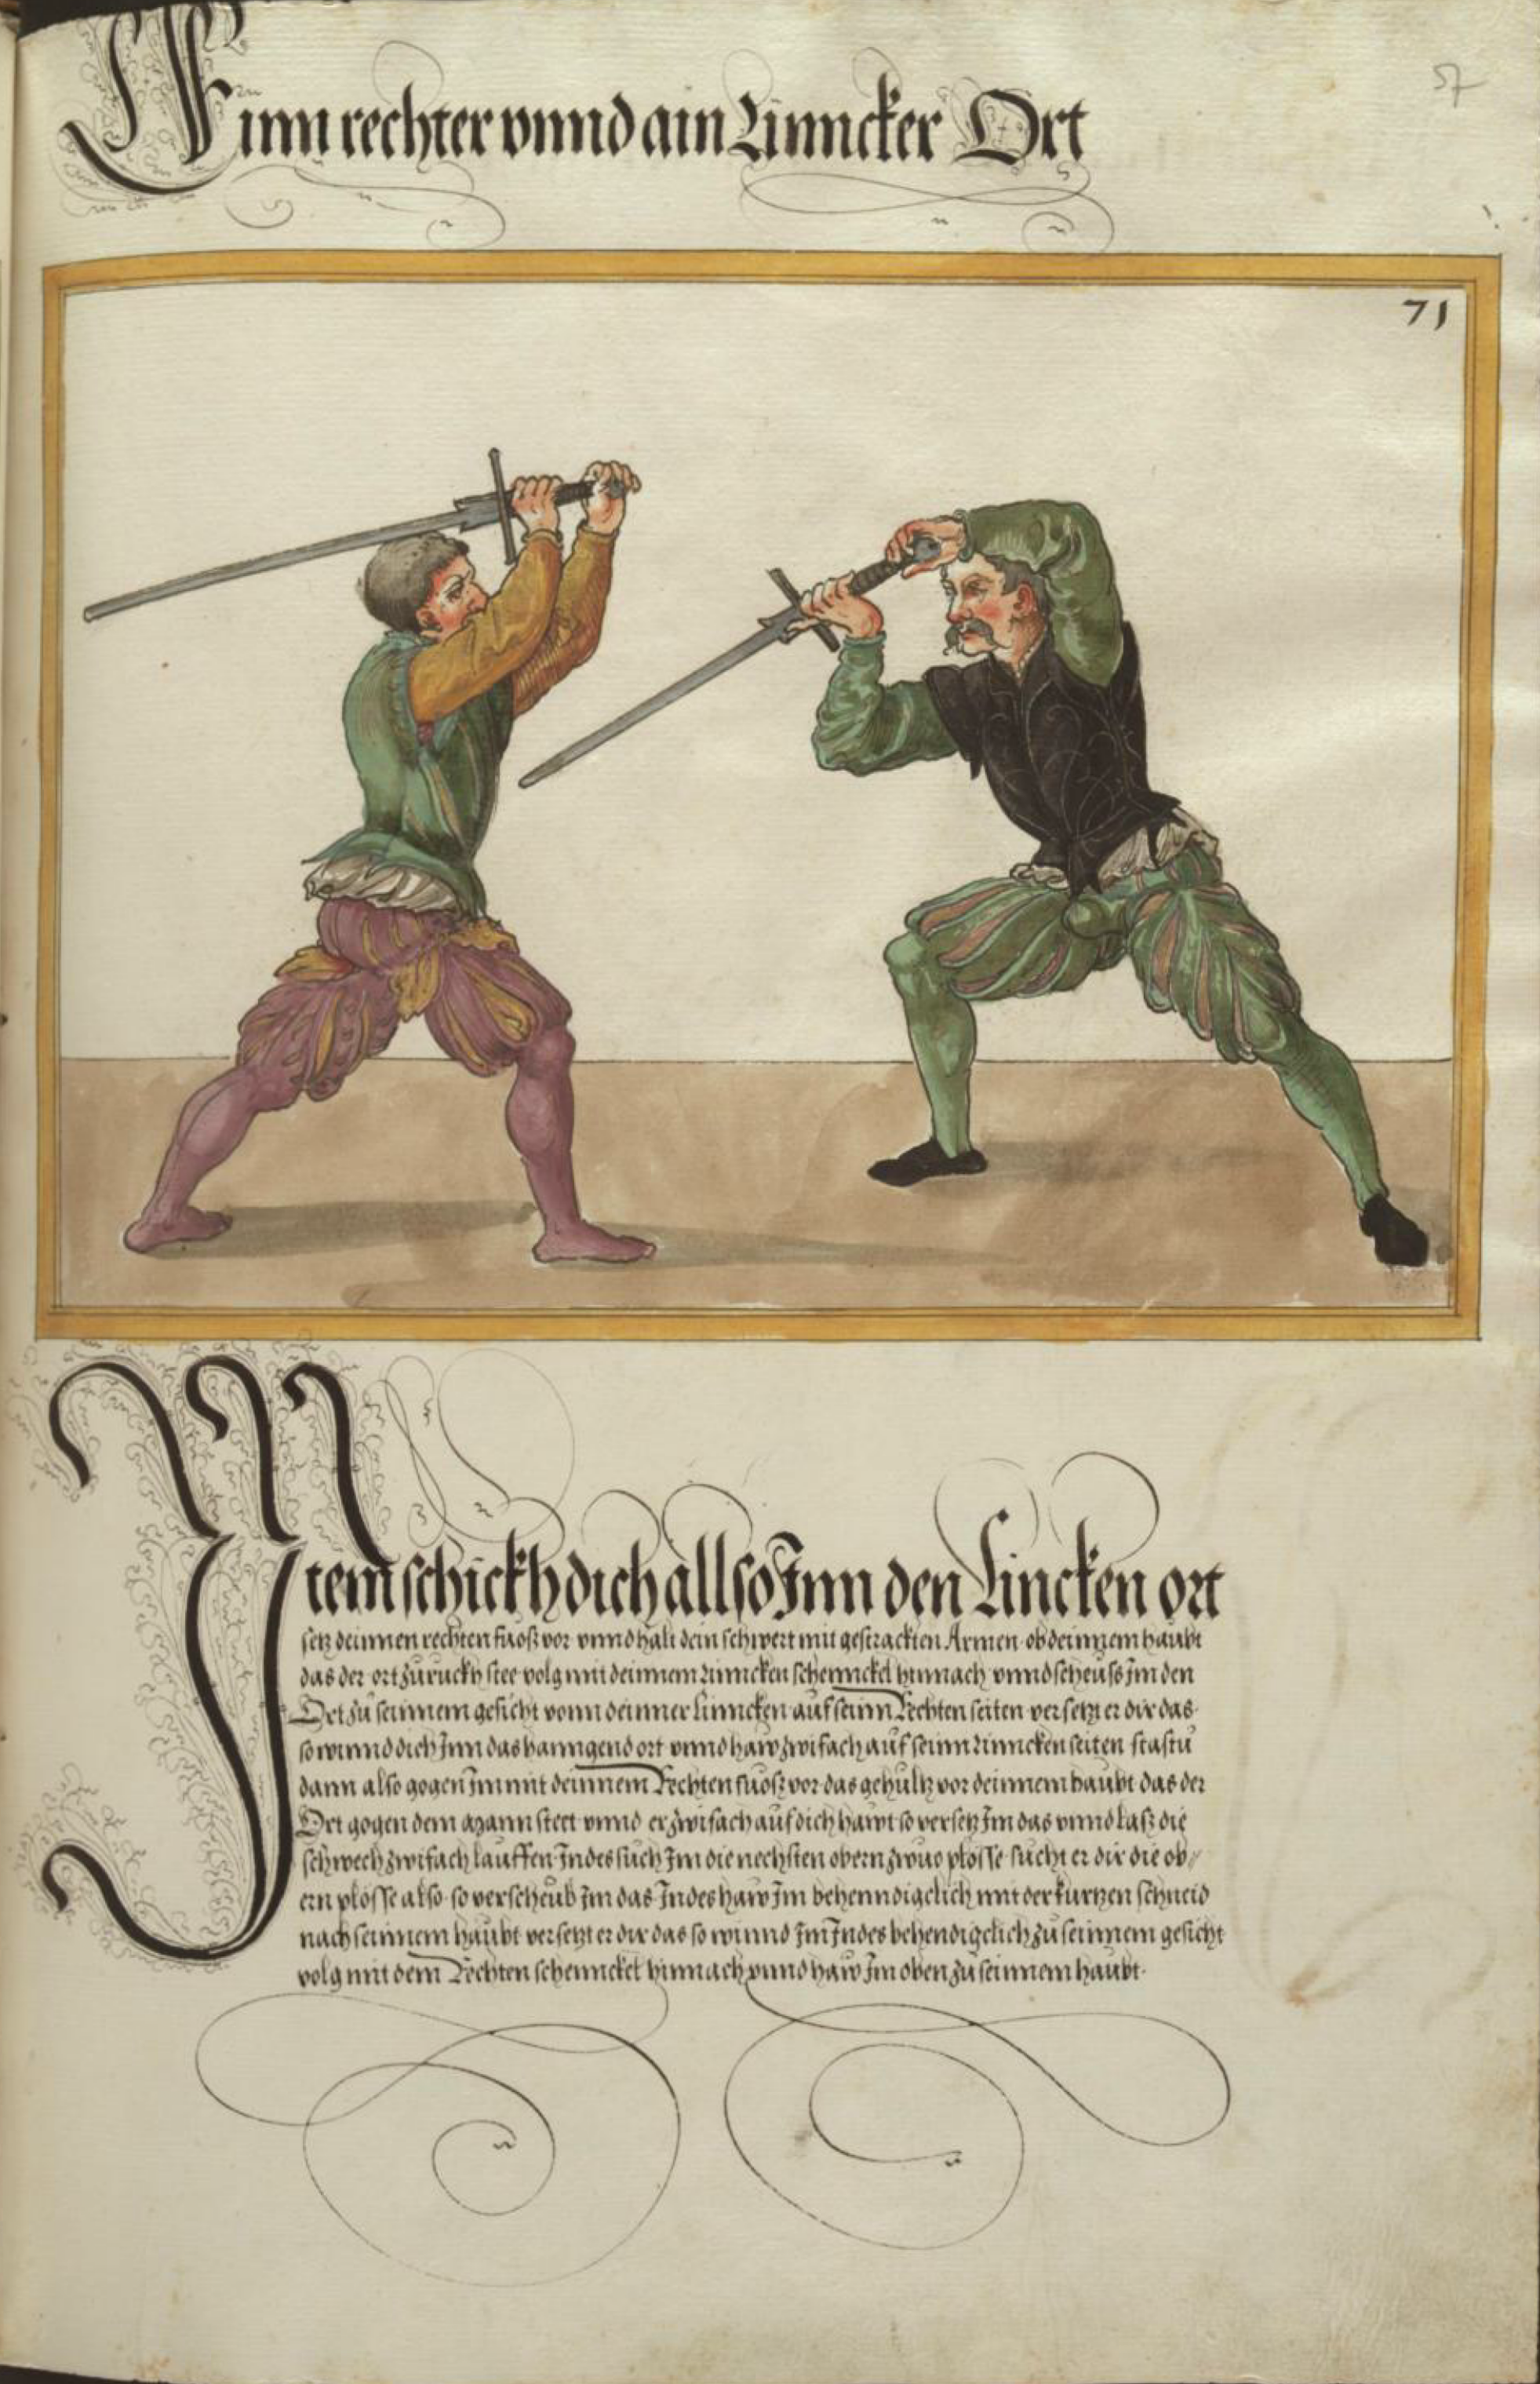 57
Ainn rechter vnnd ain Linncker Ort
71
Item schickh dich allso Inn den Lincken ort
setz deinnen rechten fuoß vor vnnd halt dein schwert mit gestrackten Armen ob deinnem haubt
das der ort zuruckh stee volg mit deinnem Linncken schennckel hinnach vnnd scheuss Im den
Ort zu seinnem gesicht vonn deinner Linncken auf seinn Rechten seiten versetzt er dir das
so wind dich Inn das hanngend ort vnnd haw zwifach auf seinn Linncken seiten stastu
dann also gogen Im mit deinnem Rechten fuoß vor das gehultz vor deinnem haubt das der
Ort gogen dem Mann steet vnnd er zwifach auf dich hawt so versetz Im das vnnd laß die
schwech zwifach lauffen Indes such Im die nechsten obern zwuo plosse sucht er dir die ob//
ern plosse also so verscheub Im das Indes haw Im behenndigelich mit der kurtzen schneid
nach seinnem haubt versetzt er dir das so winnd Im Indes behendigelich zu seinnem gesicht
volg mit dem Rechten schennckel hinnach vnnd haw Im oben zu seinnem haubt.